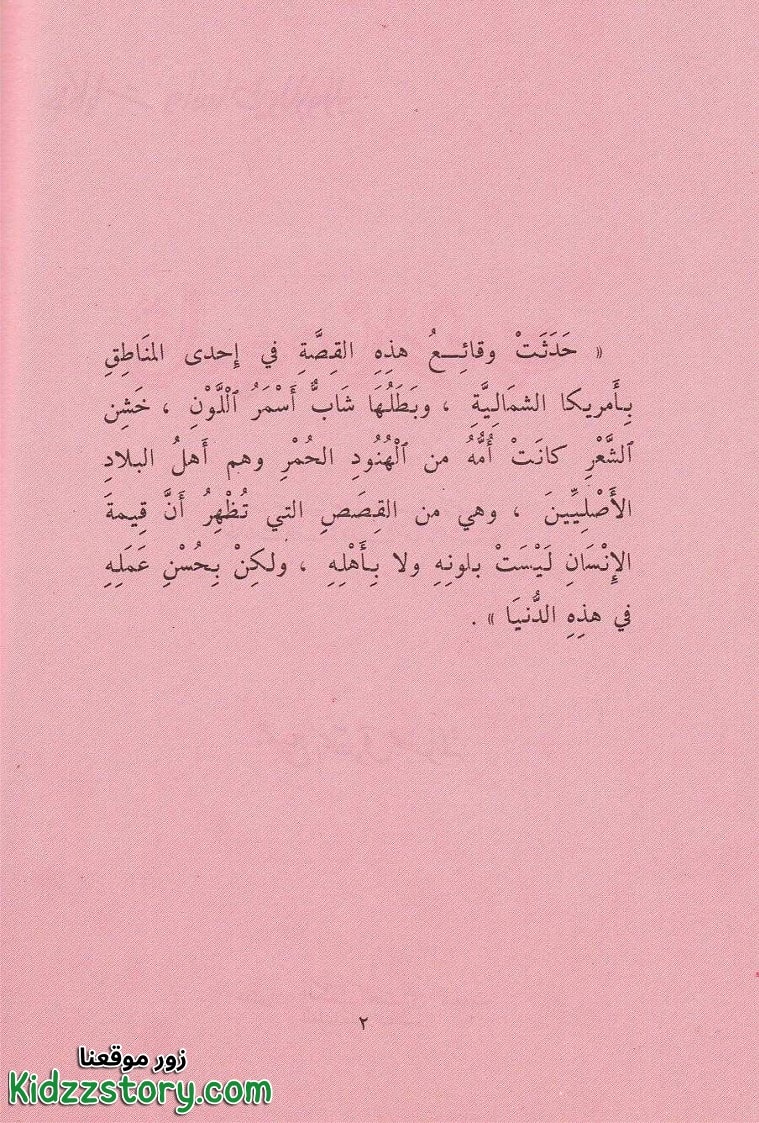 « حَدَثَتْ وقائِـــعُ هذِهِ القِصَّةِ في إحدى المنَاطِقِ
بِأَمريكا الشمَالِيَّةِ ، وبَطَلُهَا شَابٌّ أَسْمَرُ ٱللَّوْنِ ، خَشِن
ٱلشَّعْرِ كانَتْ أُمُّهُ من ٱلْهُنُودِ الحُمْرِ وهم أَهلُ البلادِ
الأَصْلِيِّينَ ، وهي من القِصَصِ التي تُظْهِرُ أَنَّ قِيمةَ
الإِنْسَانِ لَيْسَتْ بلونِهِ ولا بِأَهْلِهِ ، ولكِنْ بِحُسْنِ عَمَلِهِ
في هذِهِ الدُّنيَا » .
٢
زور موقعنا
Kidzzstory.com